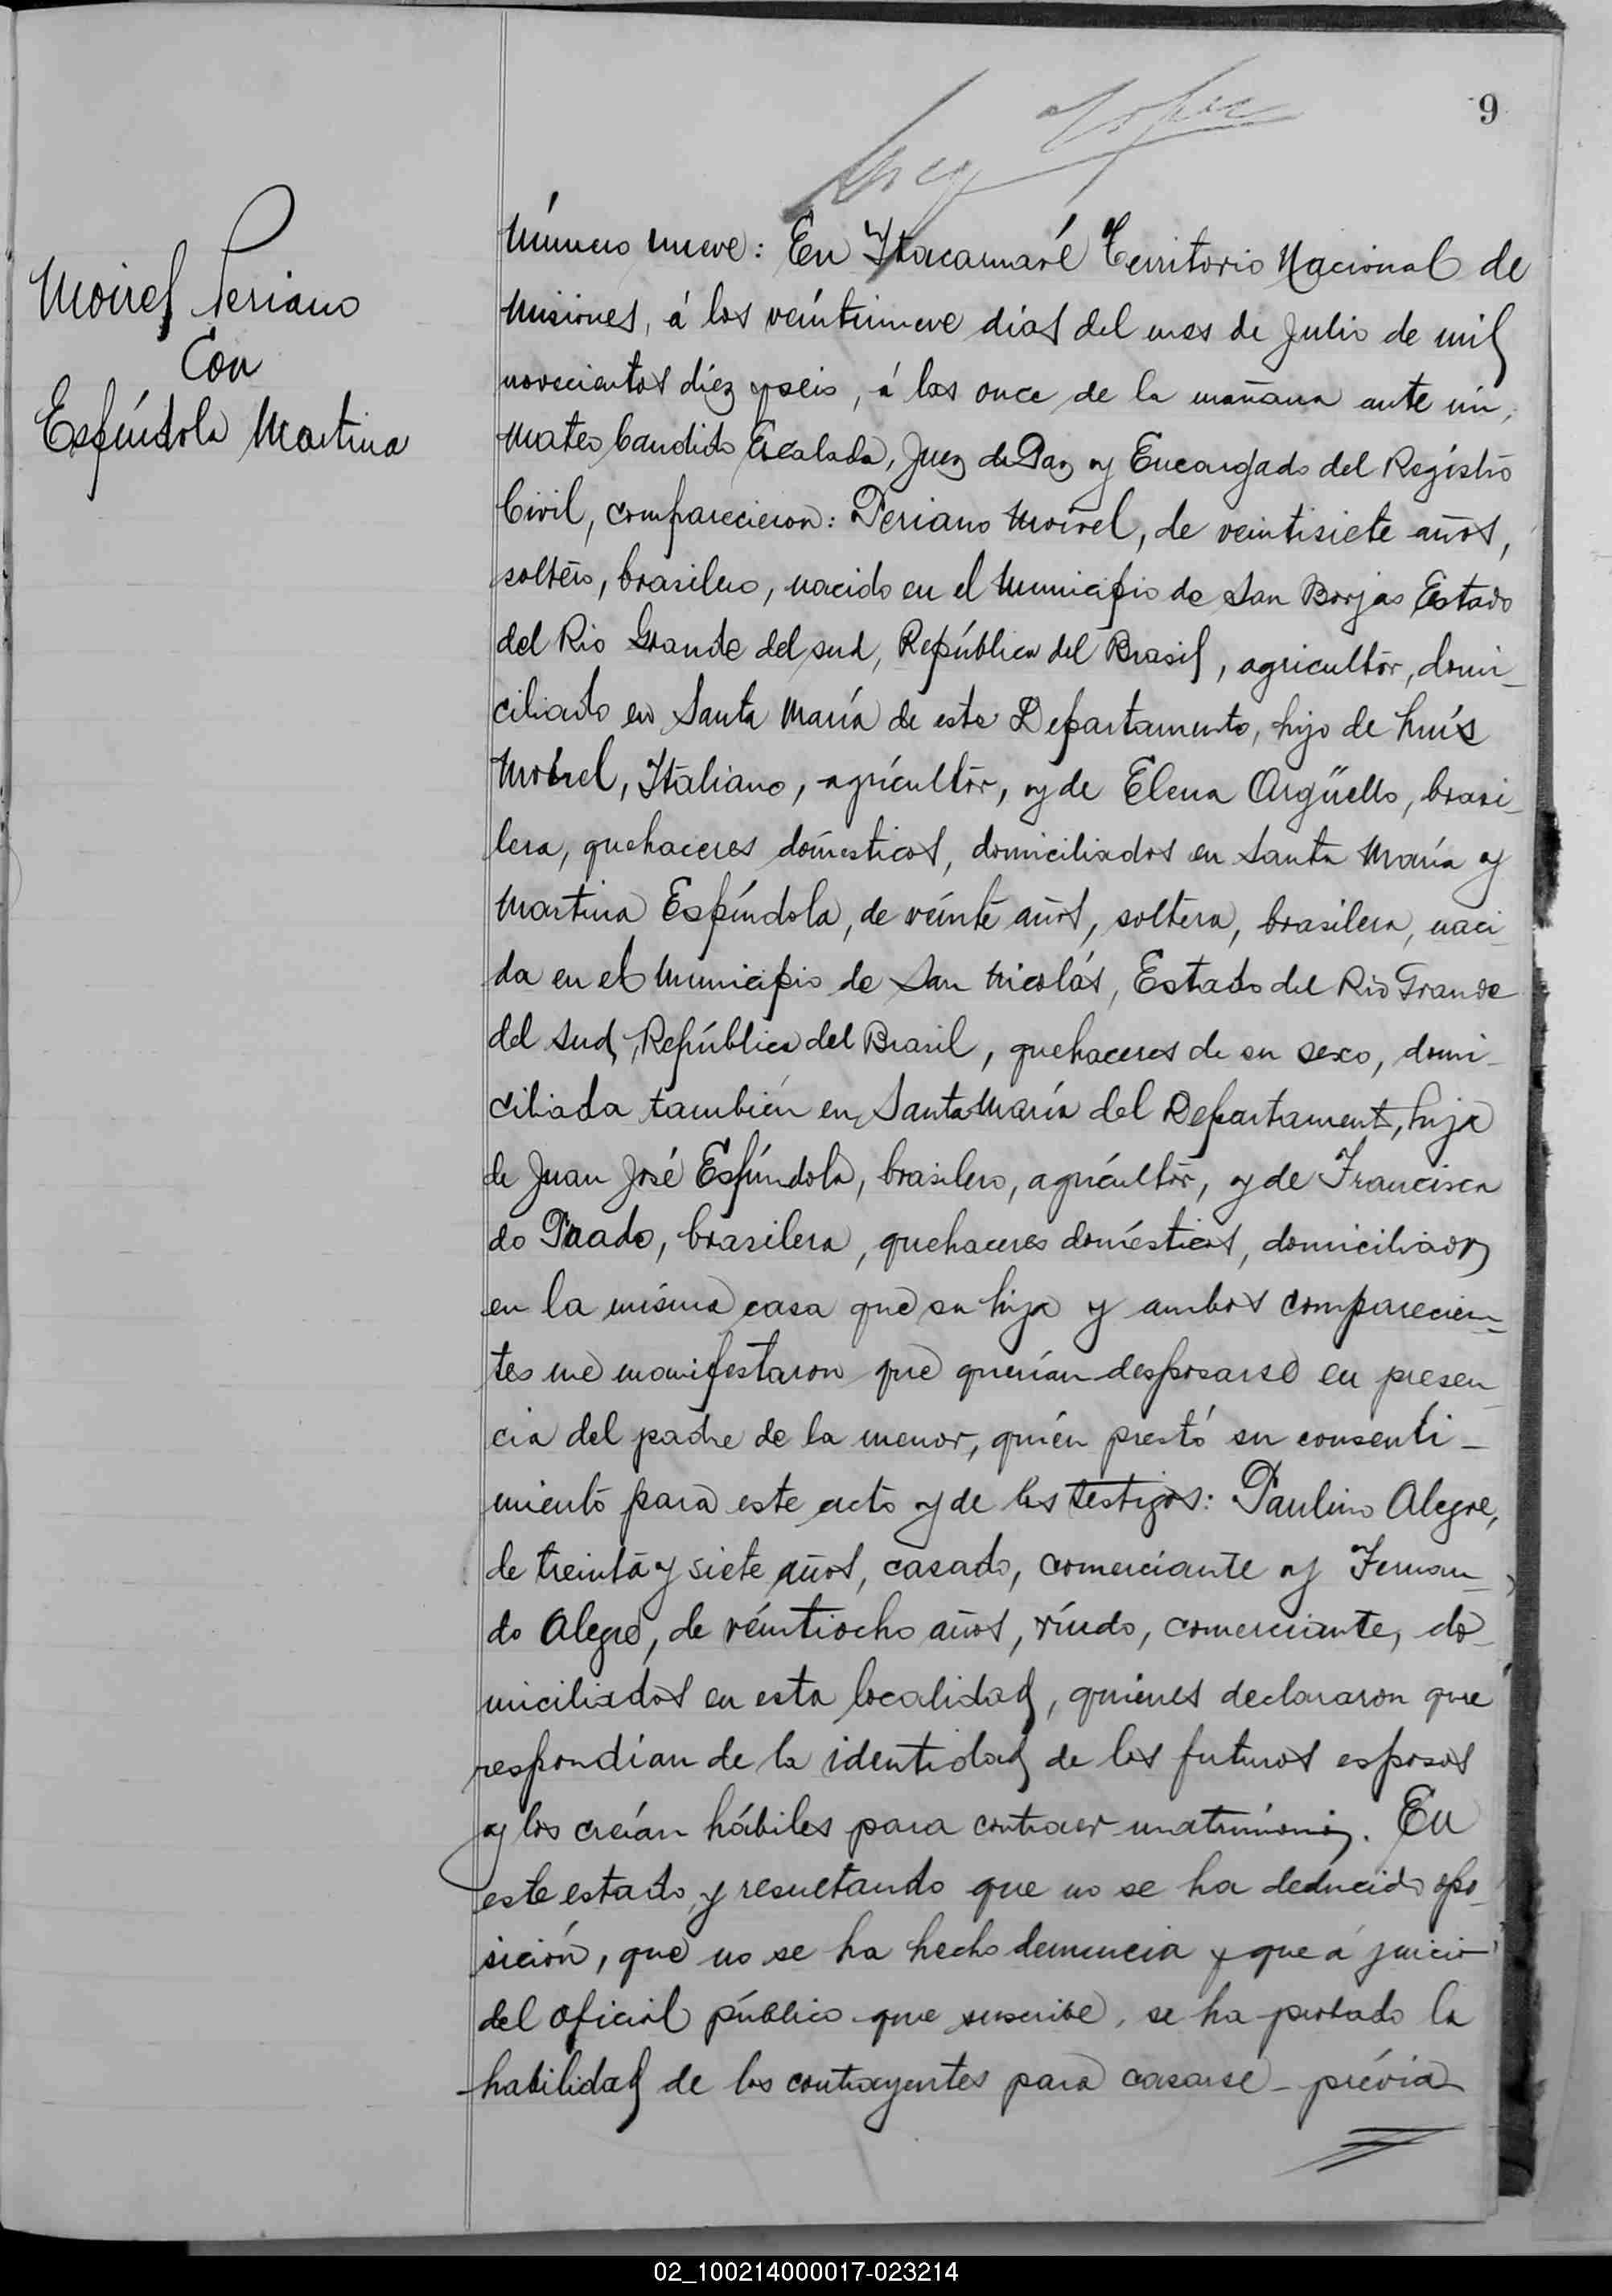 9
Moirel Periano
Con
Espíndola Martina
Número nueve: En Itacaruaré Territorio Nacional de
Misiones, á los veintinueve días del mes de Julio de mil
novecientos diez y seis, á las once de la mañana ante mi,
Mateo Candido Escalada, Juez de Paz y Encargado del Registro
Civil, comparecieron: Periano Moirel, de veintisiete años,
soltero, brasilero, nacido en el Municipio de San Borjas Estado
del Rio Grande del sud, República del Brasil, agricultor, domi-
ciliado en Santa María de este Departamento, hijo de Luís
Moirel, Italiano, agricultor, y de Elena Argüello, brasi-
lera, quehaceres domésticos, domiciliados en Santa María y
Martina Espíndola, de veinte años, soltera, brasilera, naci-
da en el Municipio de San Nicolás, Estado del Rio Grande
del Sud, República del Brasil, quehaceres de su sexo, domi-
ciliada también en Santa María del Departament, hija
de Juan José Espíndola, brasilero, agricultor, y de Francisca
do Prado, brasilera, quehaceres domésticos, domiciliados
en la misma casa que su hija y ambos comparecien-
tes me manifestaron que querían desposarse en presen-
cia del padre de la menor, quién prestó su consenti-
miento para este acto y de los testigos: Paulino Alegre,
de treinta y siete años, casado, comerciante y Fernan-
do Alegre, de veintiocho años, viudo, comerciante, do-
miciliados en esta localidad, quienes declararon que
respondían de la identidad de los futuros esposos
y los creían hábiles para contraer matrimonio. En
este estado, y resultando que no se ha deducido opo-
sición, que no se ha hecho denuncia y que á juicio
del oficial público que suscribe, se ha probado la
habilidad de los contrayentes para casarse - prévia
02_100214000017-023214